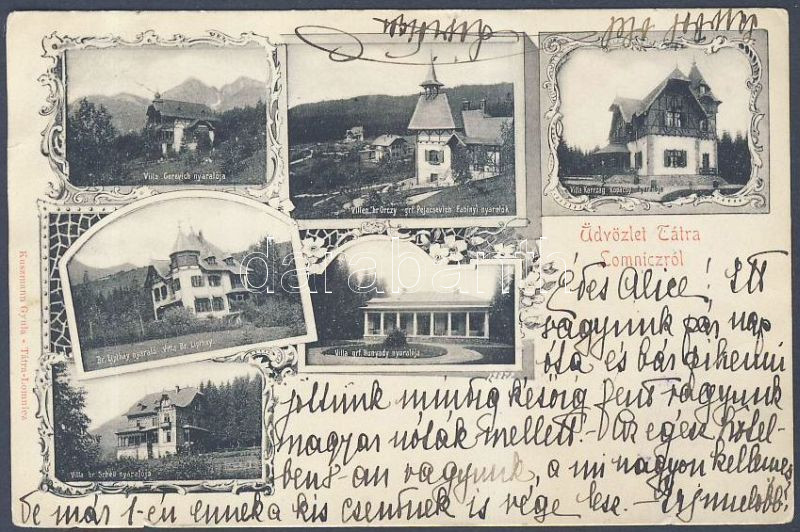 Villa Gerevich nyaralója
Villen br Orczy grf. Pejacsevich Fabinyi nyaralók
Villa Karczag Kopácsy nyaralója
Üdvözlet Tátra
Lomniczról
Br. Lipthay nyaraló Villa Br. Lipthay
Villa grf. Hunyady nyaralója
Villa br. Schell nyaralója
Kussmann Gyula • Tátra-Lomnicz
darabanth
Édes Alice! Itt
vagyunk pár nap
óta és bár pihenni
jöttünk mindig későig fent vagyunk
magyar nóták mellett. Az egész hotel-
ben an vagyunk, a mi nagyon kellemes
De már 1-én ennek a kis csendnek is vége lesz. Írj mielőbb!